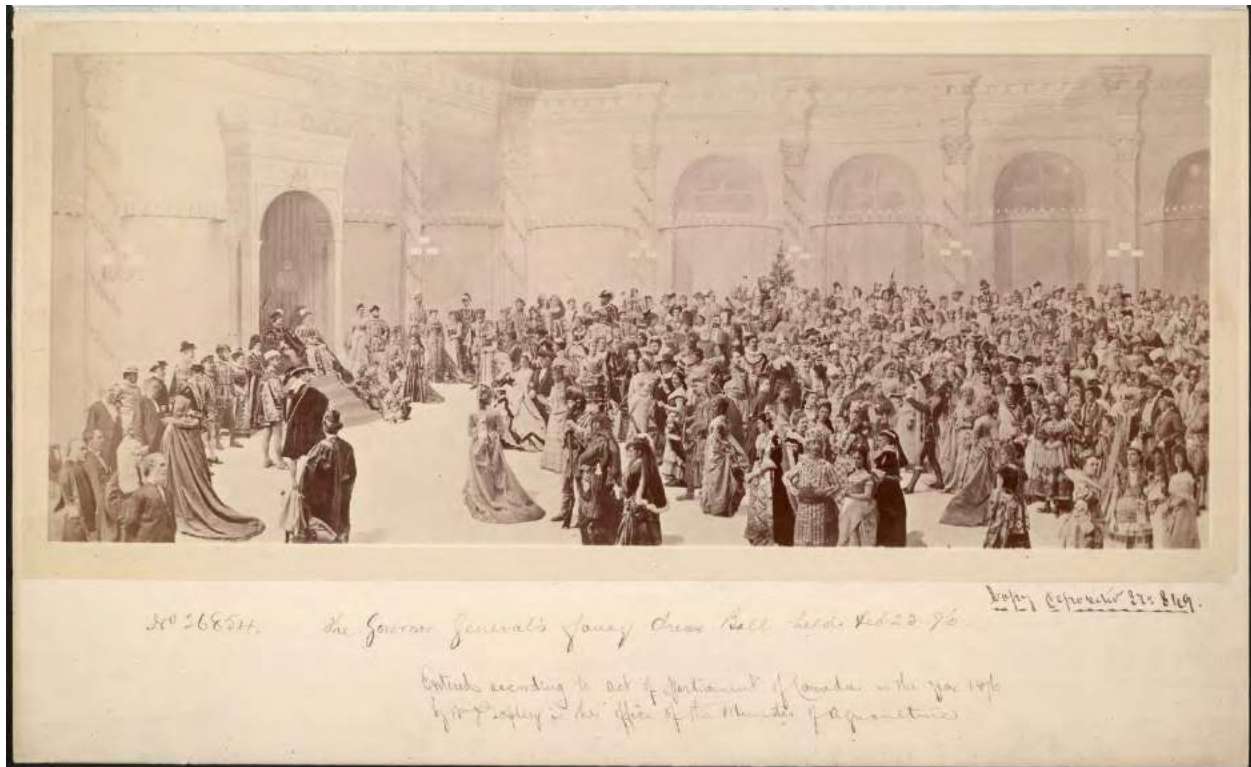 Copy deposited No 849.
No 26854. The Governor General's Fancy Dress Ball held Feb 23 96
Entered according to act of Parliament of Canada in the year 1876
by W J Topley in the office of the Minister of Agriculture